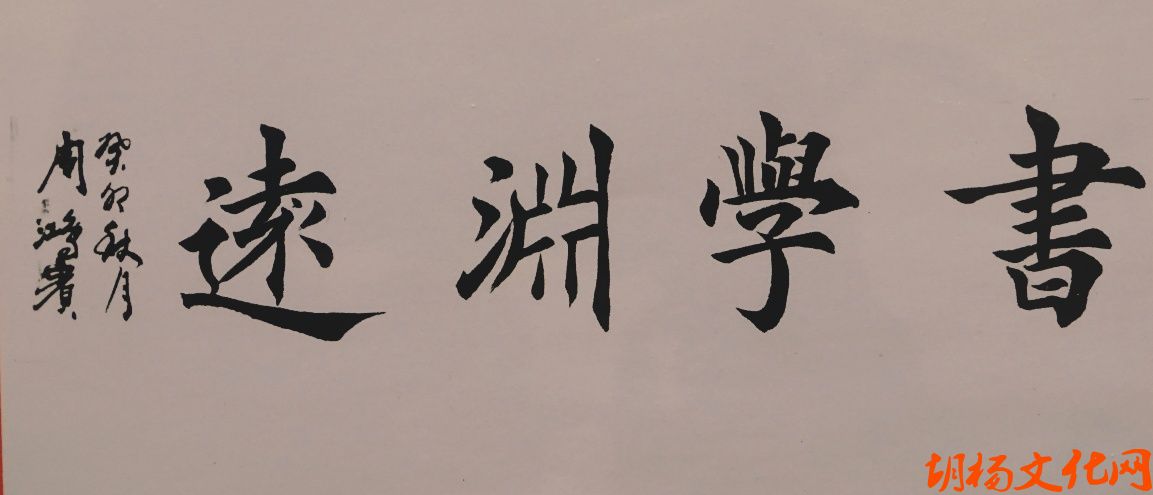 書學淵遠
癸卯秋月
周鴻賓
胡杨文化网